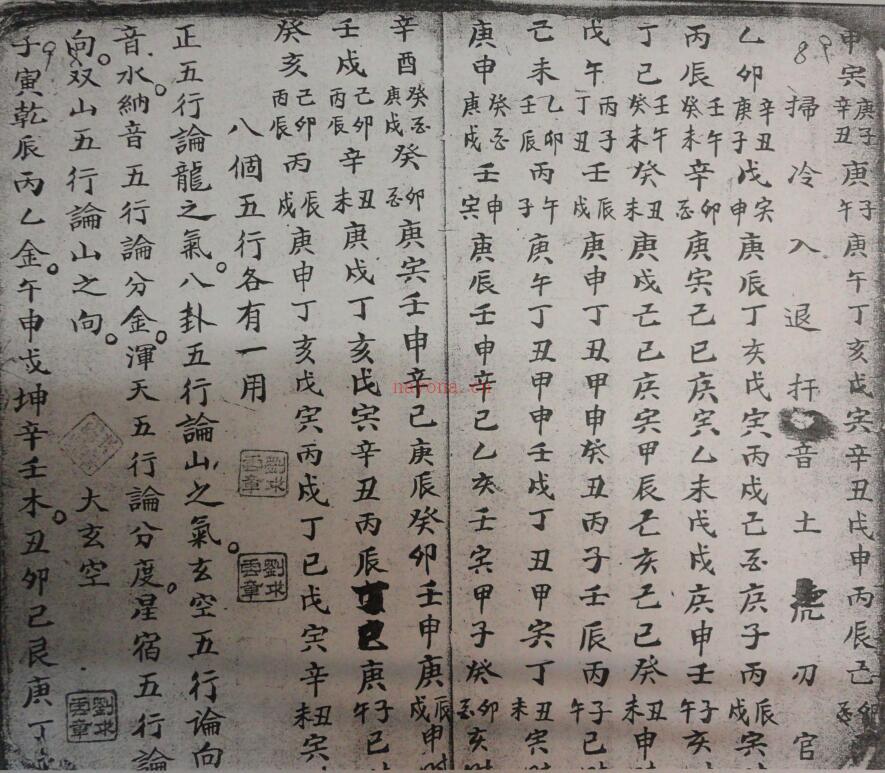 甲寅 庚子 辛丑 庚 子午 庚午丁亥戊寅辛丑戊申丙辰己
掃冷入退扞音土虎刃官
乙卯 辛丑 庚子 戊 寅申 庚辰丁亥戊寅丙戌己丑庚子丙 辰戌 寅
丙辰 壬午 癸未 辛 卯 庚寅己巳庚寅乙未戊戌庚申壬 子午 亥
丁巳 壬午 癸未 癸 丑未 庚戌己巳庚寅甲辰己亥己巳癸 丑未 申
戊午 丙子 丁丑 庚 辰戌 庚申丁丑甲申癸丑丙子壬辰丙 子午 巳
己未 乙卯 壬辰 丙 午子 庚午丁丑甲申壬戌丁丑甲寅丁 丑未 寅
庚申 癸 庚戌 壬 申寅 庚辰壬申辛巳乙亥壬寅甲子癸 卯 亥
辛酉 癸 庚戌 癸 卯 庚寅壬申辛己庚辰癸卯壬申庚 辰戌 申
壬戌 己卯 丙辰 辛 丑未 庚戌丁亥戊寅辛丑丙辰丁巳庚 子午 巳
癸亥 己卯 丙辰 丙 辰戌 庚申丁亥戊寅丙戌丁巳戊寅辛 丑未 寅
八個五行各有一用
正五行論龍之氣。八卦五行論山之氣。玄空五行論向
音水。納音五行論分金。渾天五行論分度。星宿五行論
向。双山五行論山之向。 大玄空
子寅乾辰丙乙金。午申戌坤辛壬木。丑卯己艮庚丁
劉求雲章
劉求雲章
劉求雲章